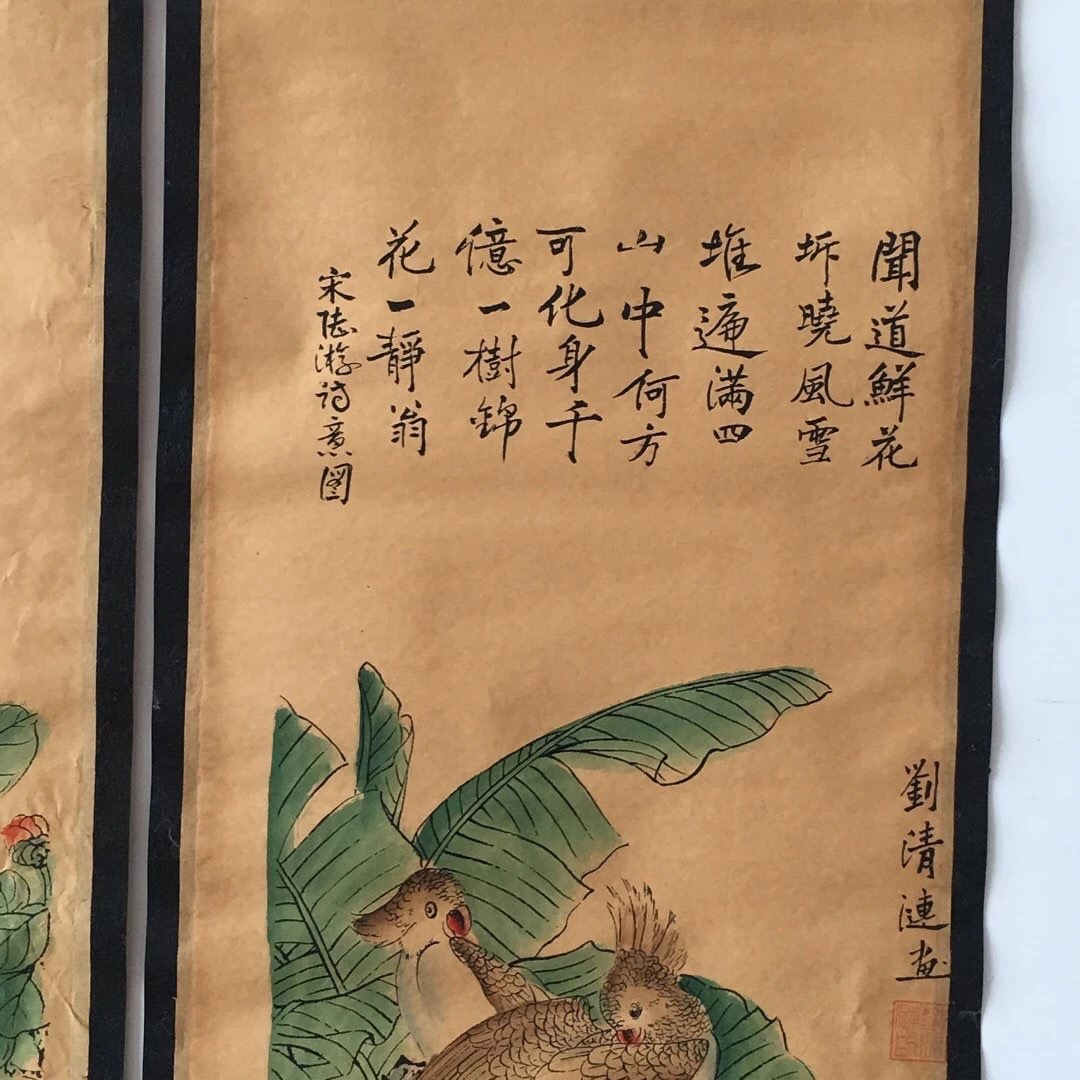 聞道鮮花
坼曉風雪
堆遍滿四
山中何方
可化身千
億一樹錦
花一靜翁
宋陸游詩意图
劉清漣画